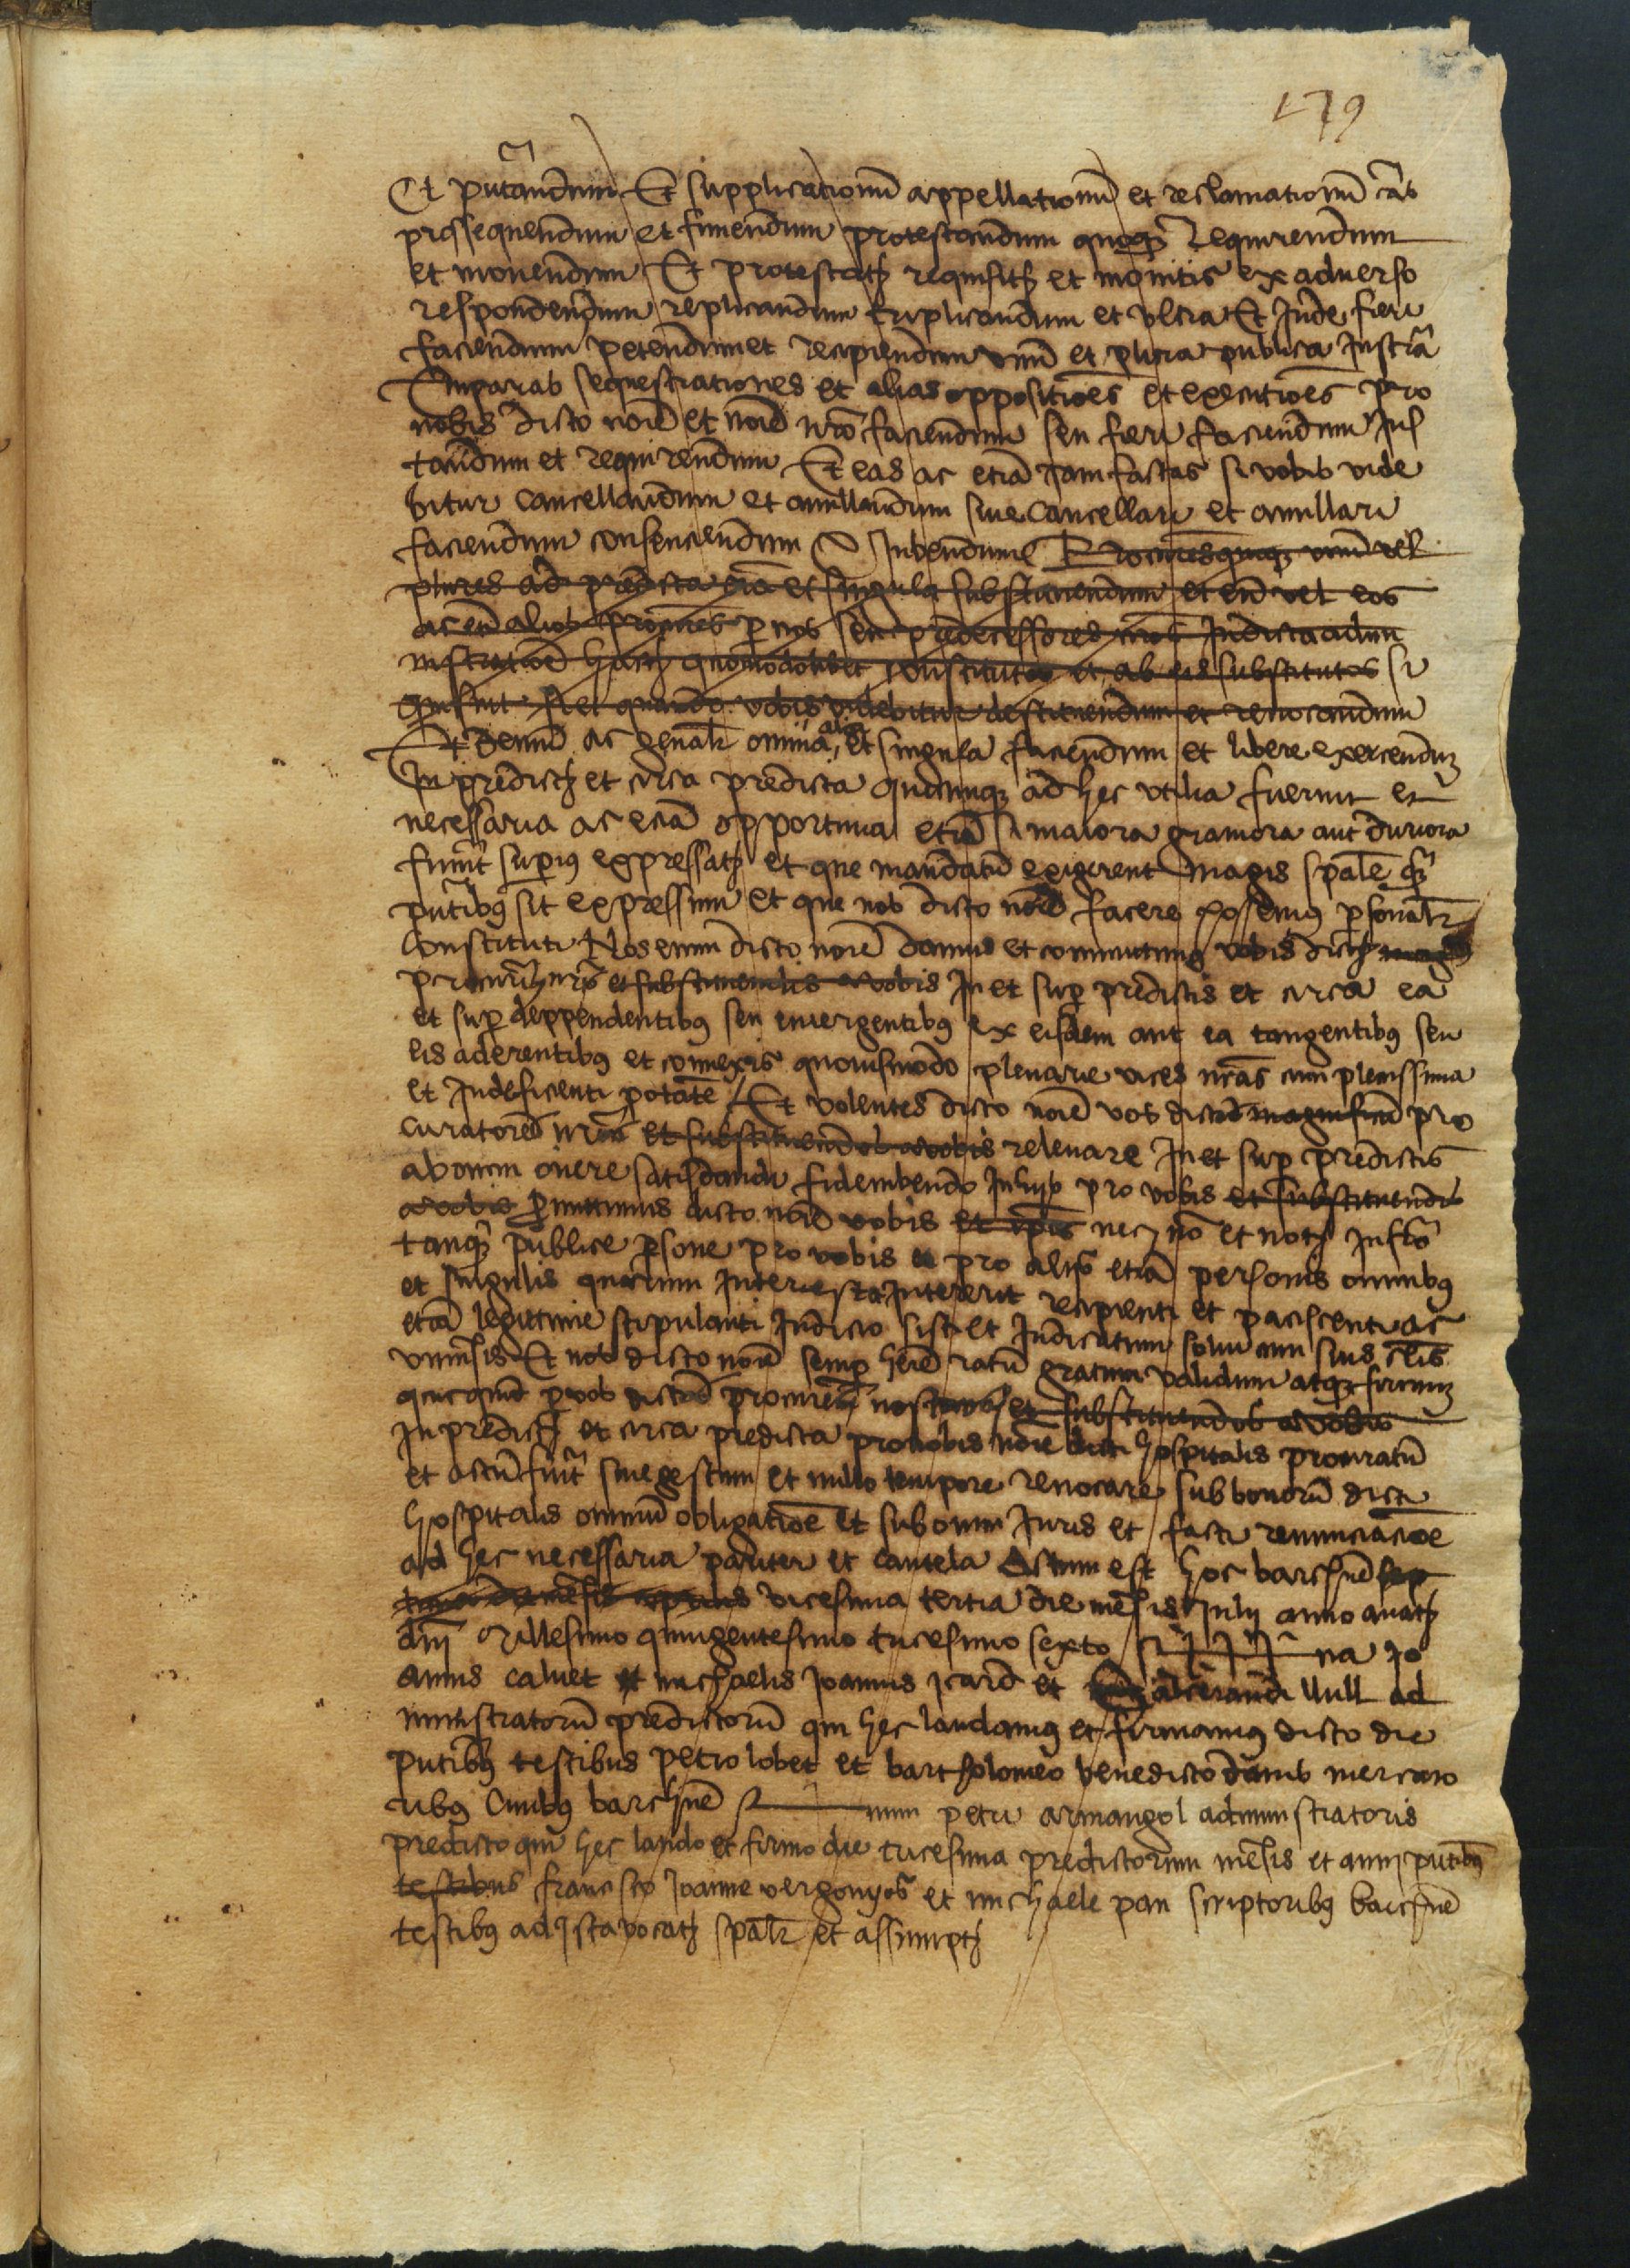 179
Et putandum Et supplicationum appellationum et reclamationum cãs
prossequendum et finiendum protestandum quoqȝ Requirendum
et monendum Et protestatȝ requisitȝ et monitis ex aduerso
respondendum replicandum triplicandum et vltra Et Inde fieri
faciendum petendum et recipiendum vnũ et plura publica Instrã
Emparas sequestrationes et alias opposiciões et execucões pro
nobis dicto noĩe et noĩe nrõ faciendum seu fieri faciendum Ins
tandum et requirendum Et eas ac eciã iam factas si vobis vide
bitur cancellandum et anullandum siue cancellari et anullari
faciendum consenciendum Et Iubendum Procuresquoqȝ vnũ vel
plures ad predicta oĩa et singula substituendum et eũ vel eos
ac eciã alios procuũes per nos seu predecessores nros In dicta admi
nistratiõe hactȝ quomodolibet constitutos et ab eis substitutos si
qui sint Et quando vobis videbitur destituendum et reuocandum
Et Demũ ac genalr omnia alia et singula faciendum et libere exercendum
In predictȝ et circa predicta quecumqȝ ad hec vtilia fuerint et
necessaria ac eciã opportuna etiã si maiora grauiora aut duriora
fuerint superius expressatȝ et que mandatũ exigerent magis spãle qȝ
putibus sit expressum Et que nos dicto noĩe facere possemus personalr
Constituti Nos enim dicto noĩe damus et comittimus vobis dictȝ
procuri nrõ et substituendis a vobis In et super predictis et circa ea
et super deppendentibus seu emergentibus ex eisdem aut ea tangentibus seu
eis aderentibus et connexis quouismodo plenarie vices nrãs cum plenissima
et Indeficienti potãte Et volentes dicto noĩe vos dictũ magnificũ pro
curatorẽ nrũm et substituendos a vobis releuare In et super predictis
ab omni onere satisdandi fidem bendo In hijs pro vobis et substituendis
a vobis promittimus dicto noĩe vobis et ipis necȝ nõ et notȝ Infrõ
tanqȝ publice persone pro vobis et pro alijs etiã personis omnibus
et singulis quarum Interest et Intererit recipienti et paciscenti ac
etiã legittime stipulanti Iudicio sisti et Iudicatum solui cum suis clis
vniuersis Et nos dicto noĩe semper here ratũ gratum validum atqȝ firmum
quicquid per vos dictũ procurem nostrum et substituendos a vobis
In predictȝ et circa predicta pro nobis noĩe dicti hospitalis procuratũ
et actũ fuerit siue gestum et nullo tempore reuocare sub bonorũ dicti
hospitalis omniũ obligatiõe et sub omni Iuris et facti renunciaciõe
ad hec necessaria pariter et cautela Actum est hoc barchñe
vicesima tertia die mẽsis Iulij anno a natȝ
dñi Millesimo quingentesimo tricesimo sexto S na Jo
annis caluet et michaelis Joannis icard et alcerandi llull ad
ministratorũ predictorũ qui hec laudamus et firmamus dicto die
putibus testibus petro lobet et bartholomeo benedicto damis mercato
ribus Ciuibus barchñe S num petri armangol administratoris
predicto qui hec laudo et firmo die tricesima predictorum mẽsis et anni putibus
testibus francisco Joanne vergonyos et michaele pau scriptoribus barchñe
testibus ad ista vocatȝ spãlr et assumptȝ